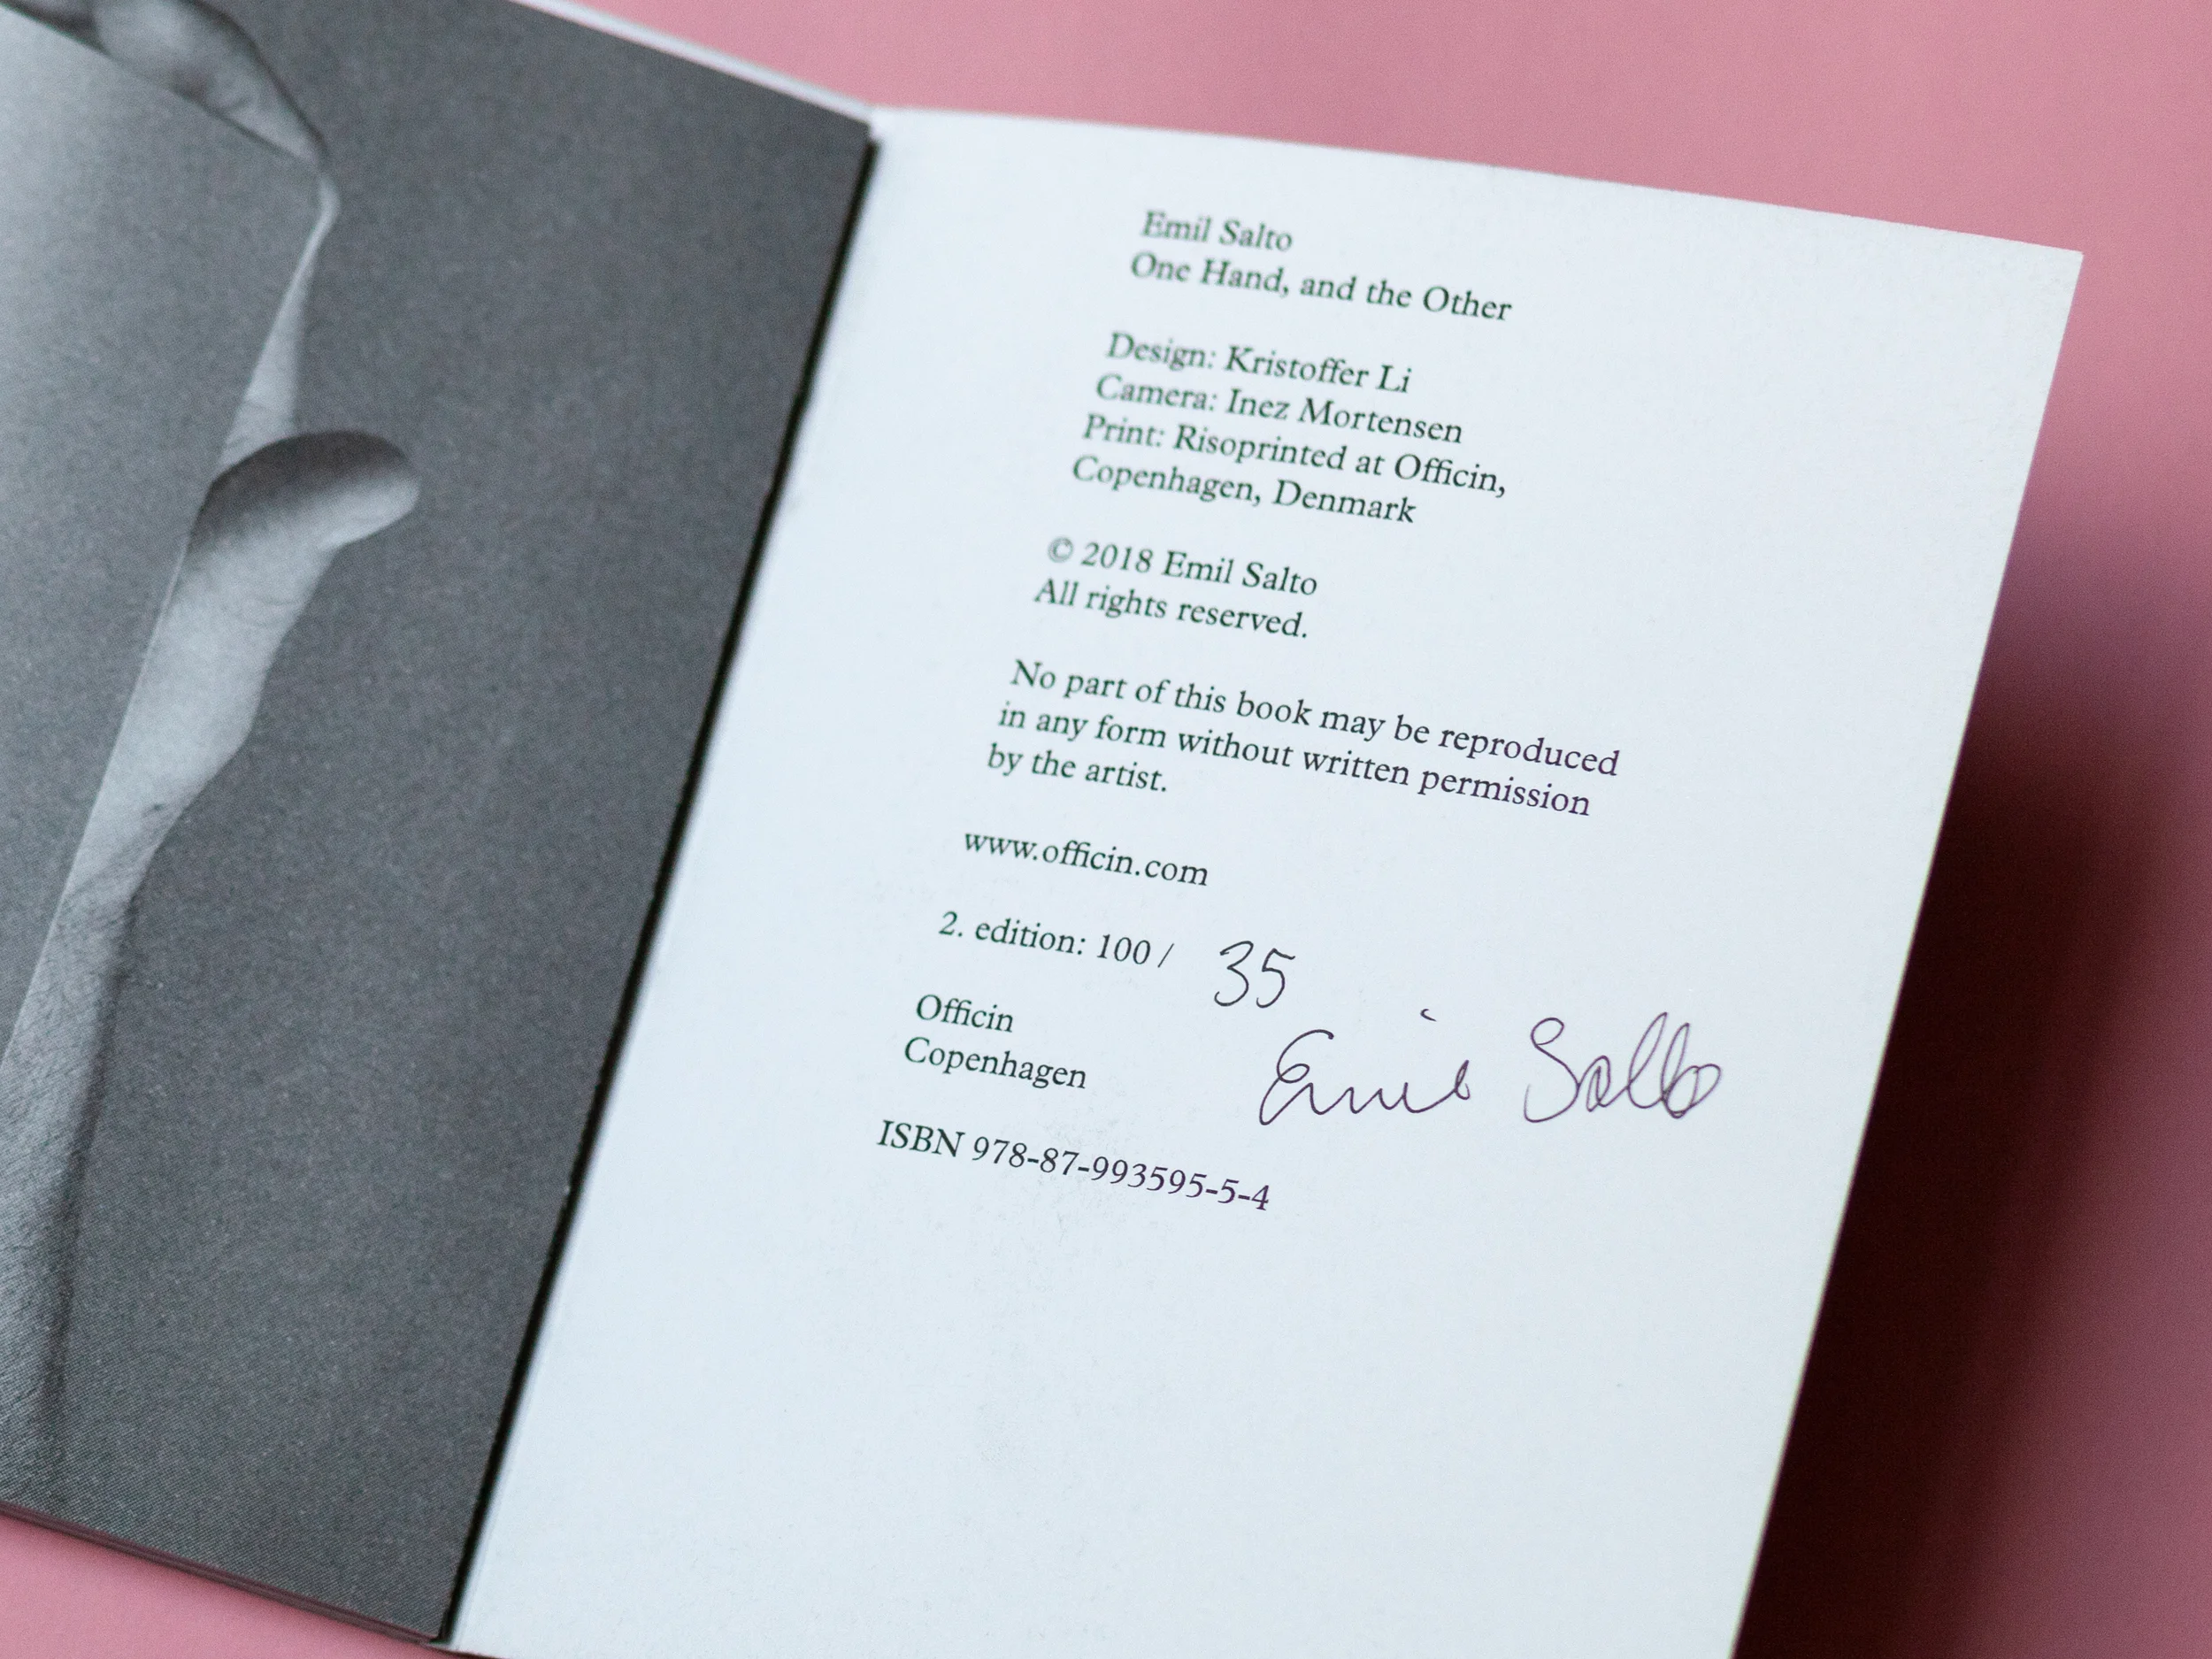 Emil Salto
One Hand, and the Other
Design: Kristoffer Li
Camera: Inez Mortensen
Print: Risoprinted at Officin,
Copenhagen, Denmark
© 2018 Emil Salto
All rights reserved.
No part of this book may be reproduced
in any form without written permission
by the artist.
www.officin.com
2. edition: 100 / 35
Emil Salto
Officin
Copenhagen
ISBN 978-87-993595-5-4